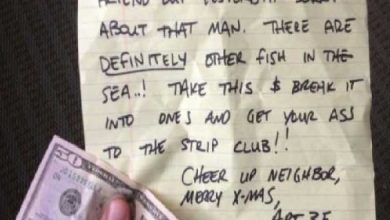 ABOUT THAT MAN. THERE ARE
DEFINITELY OTHER FISH IN THE
SEA..! TAKE THIS $ BREAK IT
INTO ONES AND GET YOUR ASS
TO THE STRIP CLUB!!
CHEER UP NEIGHBOR,
MERRY X-MAS,
APT 35
50